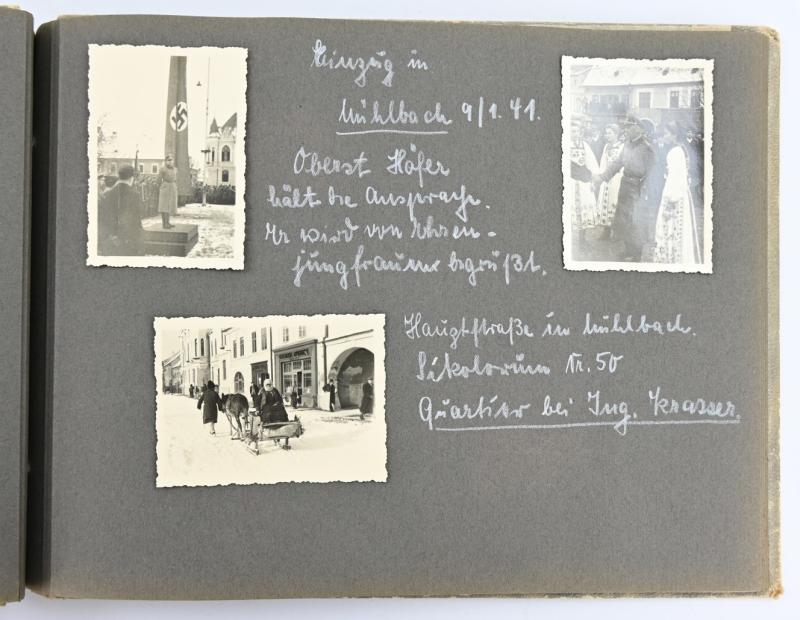 Einzug in
Mühlbach 9/1. 41.
Oberst Höfer
hält die Ansprache.
Er wird von Ehren-
jungfrauen begrüßt.
Hauptstraße in Mühlbach.
Sikolorum Nr. 50
Quartier bei Ing. Krasser.